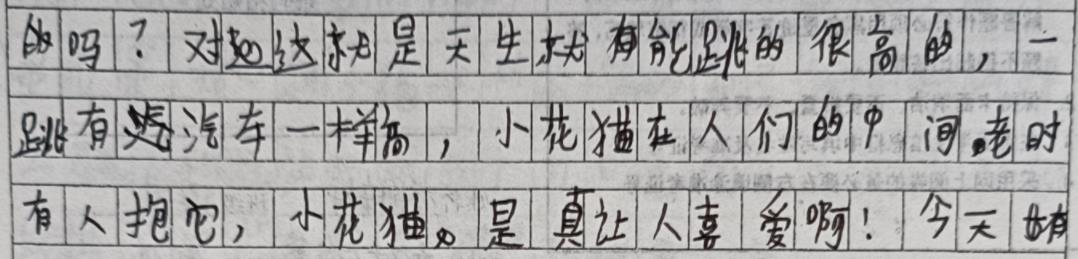 的吗？对这就是天生就有能跳的很高的，一
跳有汽车一样高，小花猫在人们的中间老时
有人抱它，小花猫是真让人喜爱啊！今天故